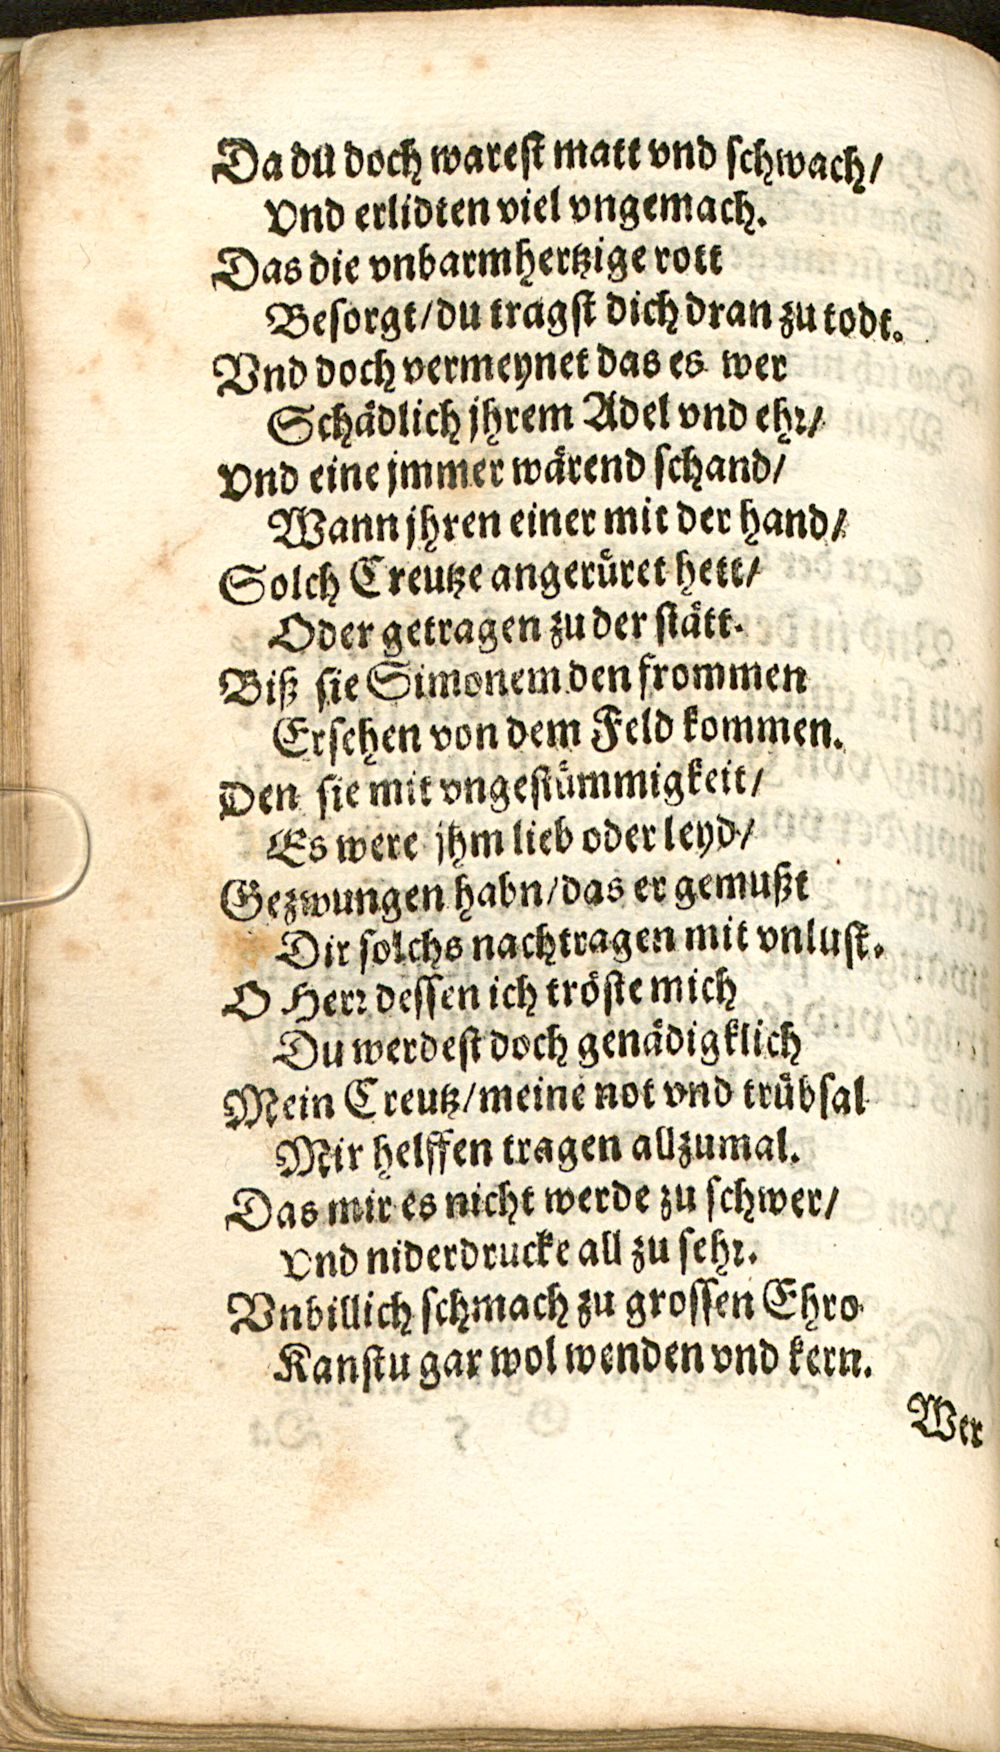 Da du doch warest matt vnd schwach/
Vnd erlidten viel vngemach.
Das die vnbarmhertzige rott
Besorgt/du tragst dich dran zu todt.
Vnd doch vermeynet das es wer
Schädlich jhrem Adel vnd ehr/
Vnd eine jmmer wärend schand/
Wann jhren einer mit der hand/
Solch Creutze angerüret hett/
Oder getragen zu der stätt.
Biß sie Simonem den frommen
Ersehen von dem Feld kommen.
Den sie mit vngestümmigkeit/
Es were jhm lieb oder leyd/
Gezwungen habn/das er gemußt
Dir solchs nachtragen mit vnlust.
O Herr dessen ich tröste mich
Du werdest doch genädigklich
Mein Creutz/meine not vnd trübsal
Mir helffen tragen allzumal.
Das mir es nicht werde zu schwer/
Vnd niderdrucke all zu sehr.
Vnbillich schmach zu grossen Ehro
Kanstu gar wol wenden vnd kern.
Wer